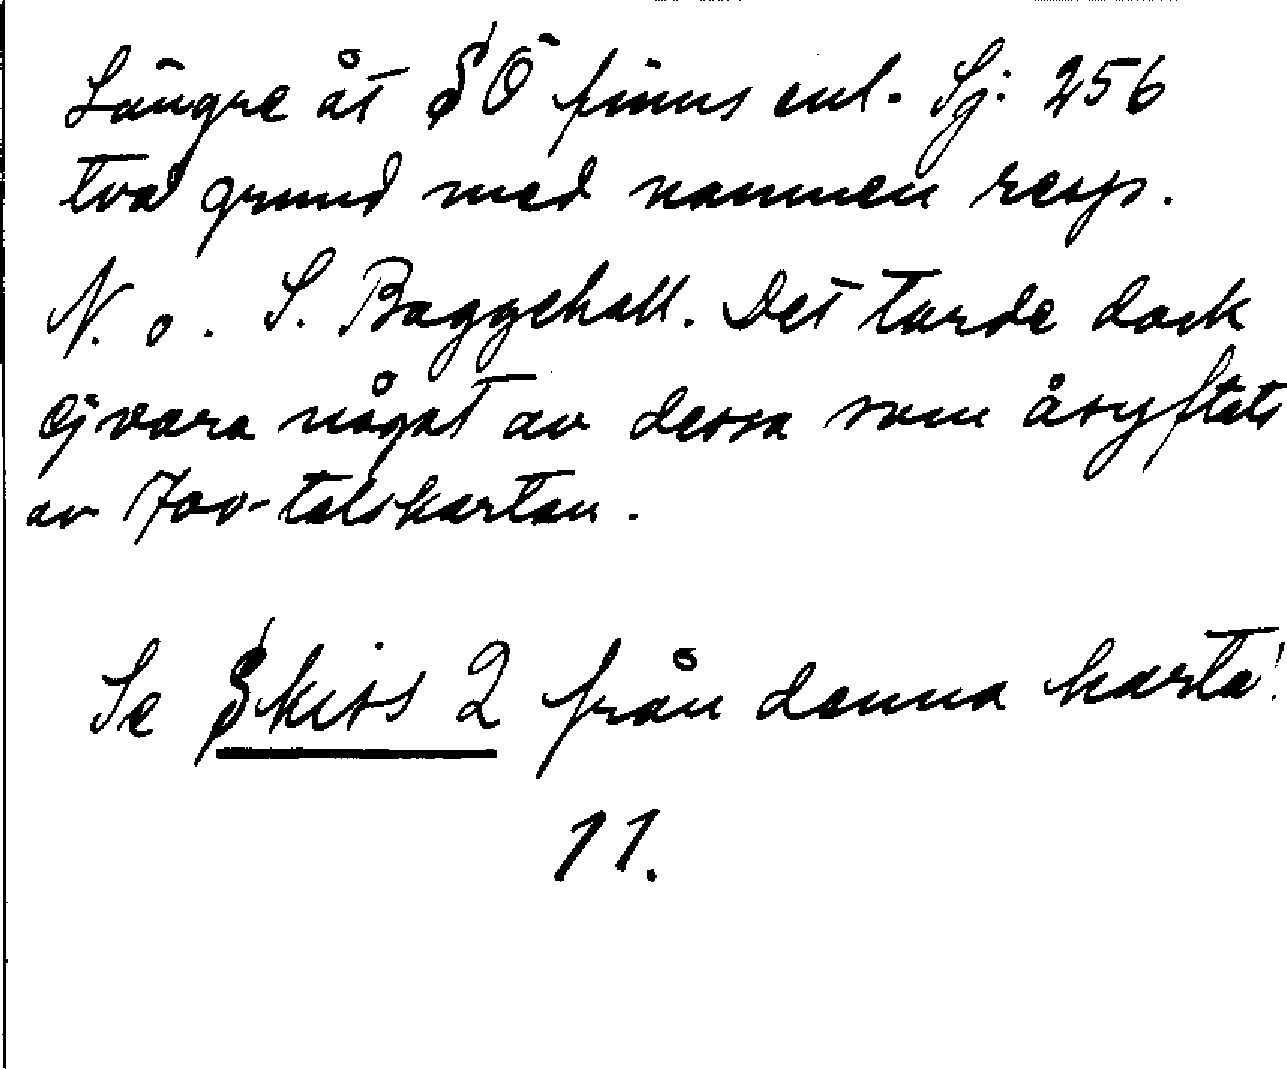 Längre åt SÖ finns enl. Sj: 256
två grund med namnen resp.
N. o. S. Baggehall. Det torde dock
ej vara något av dessa som åsyftats
av 700-talskartan.
Se Skiss 2 från denna karta!
11.